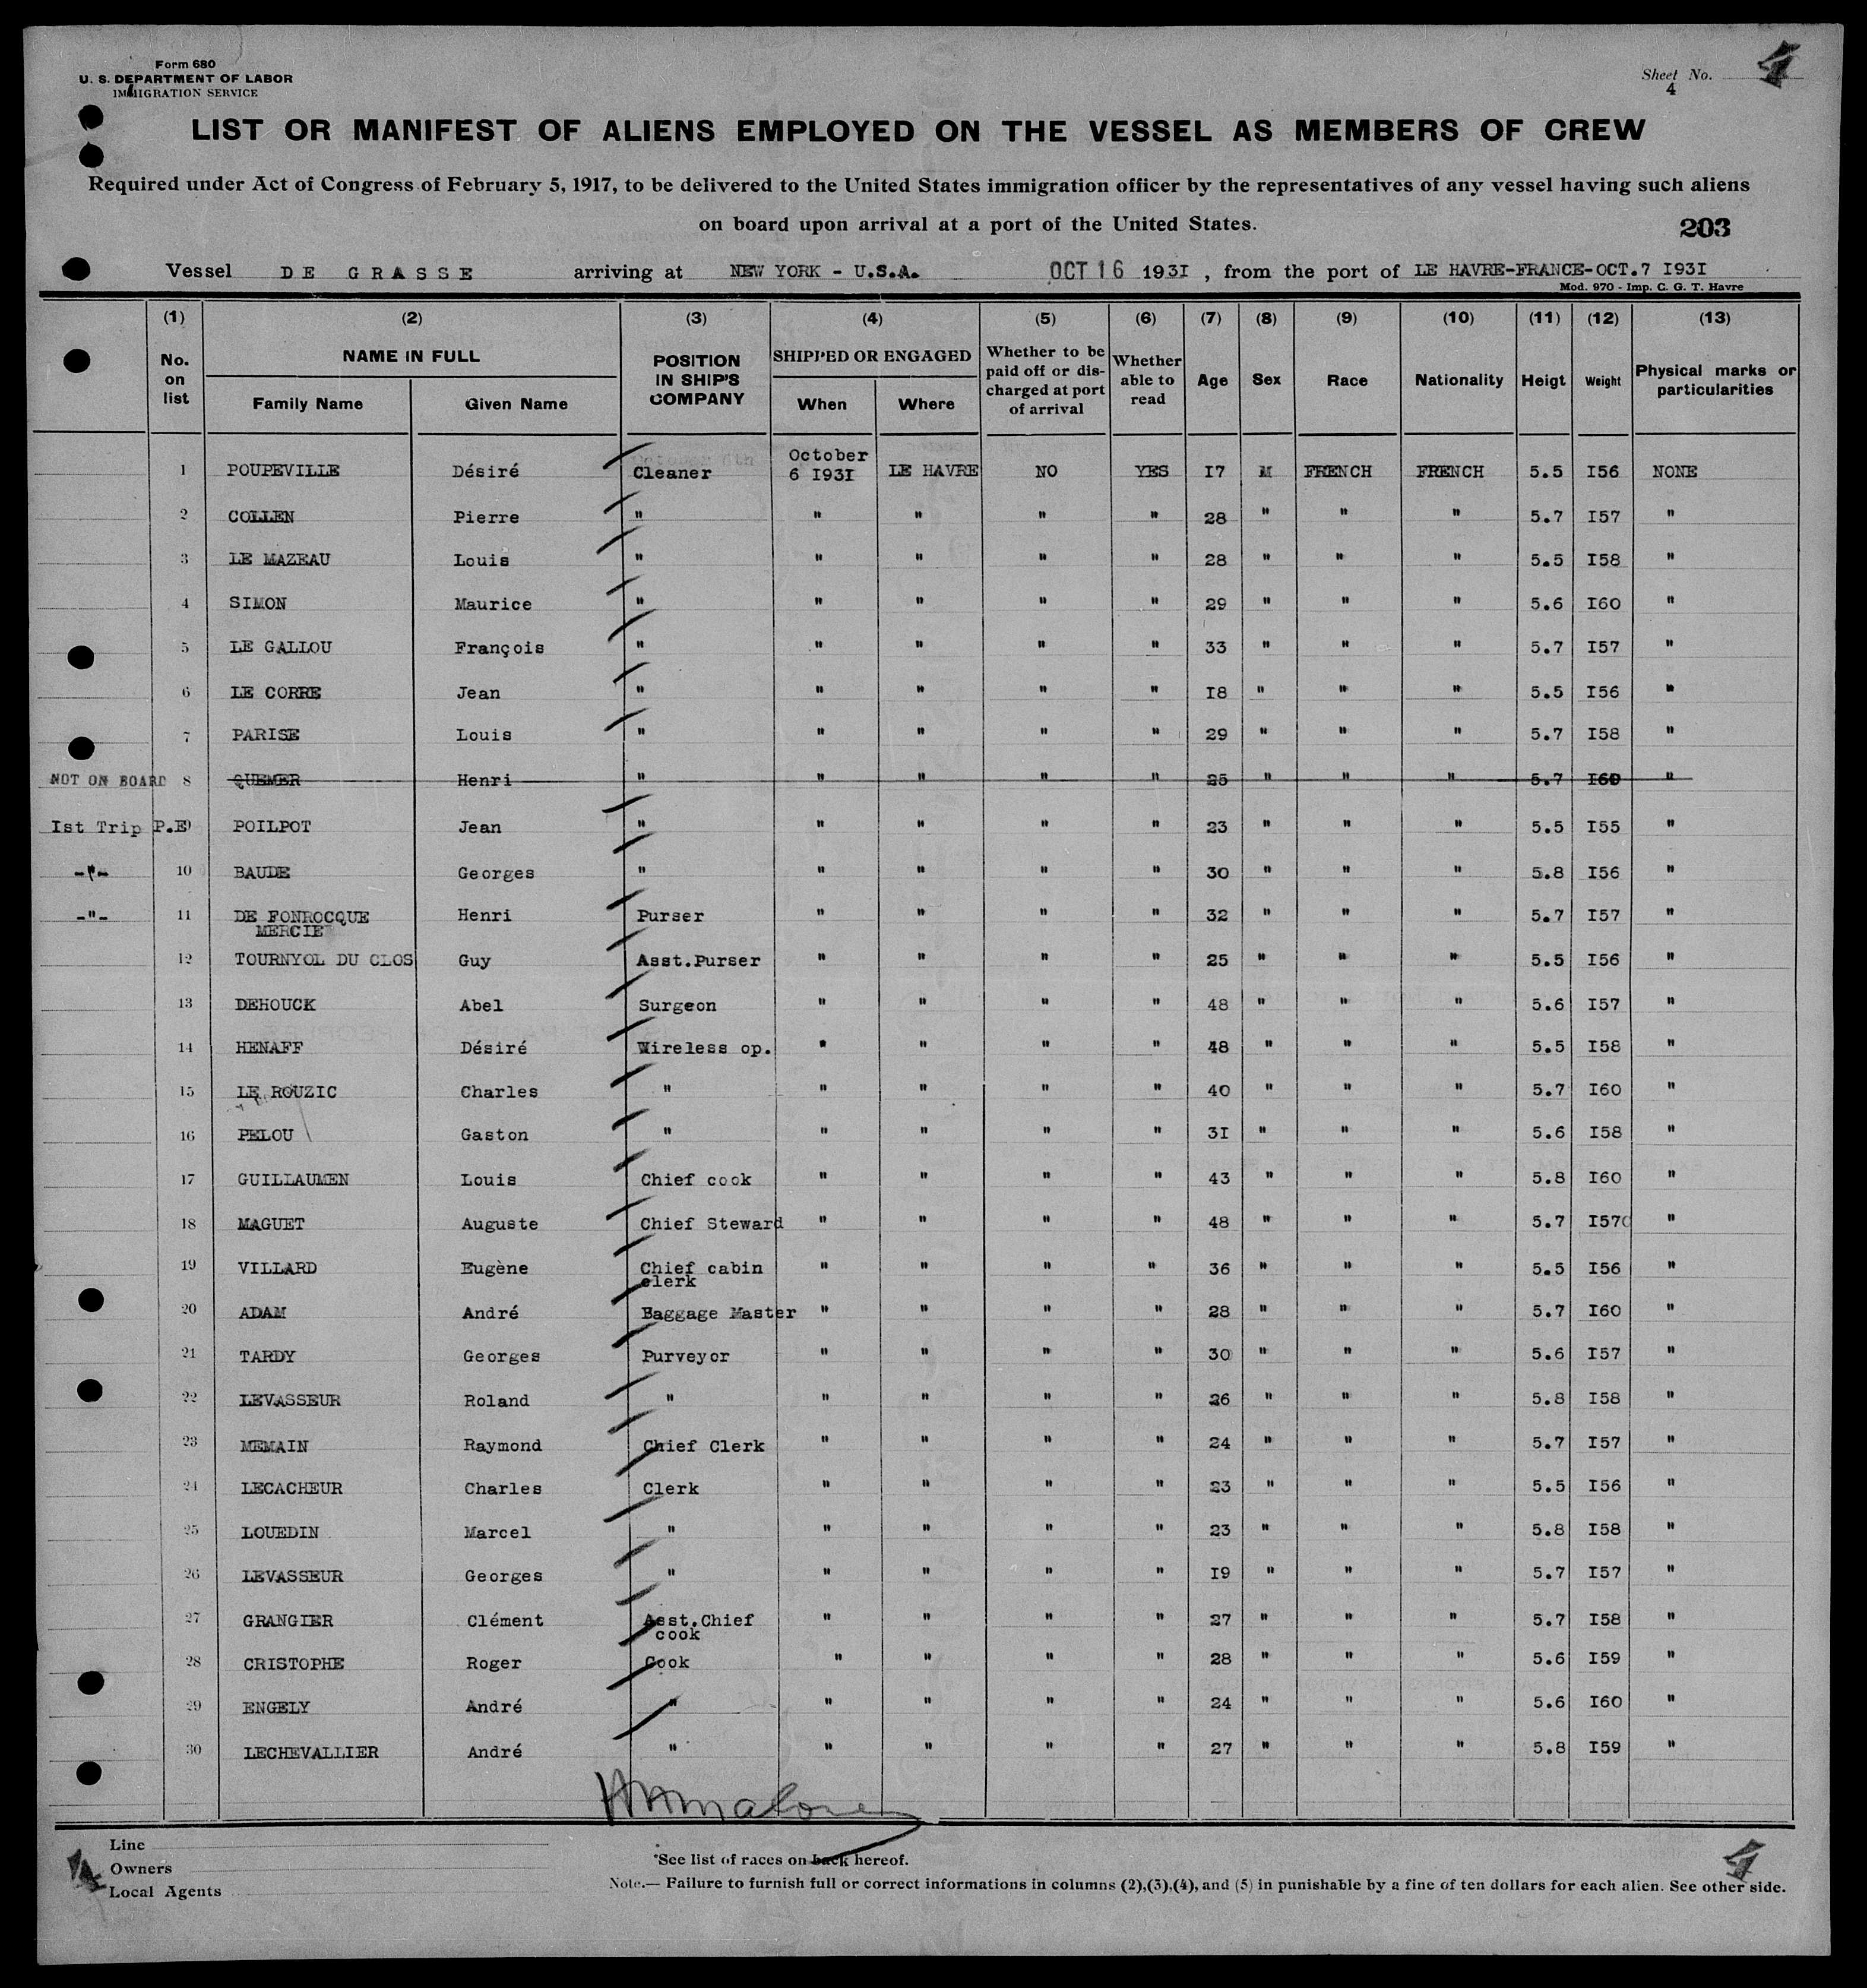 Form 680
U. S. DEPARTMENT OF LABOR
IMMIGRATION SERVICE
Sheet No. 4
4
LIST OR MANIFEST OF ALIENS EMPLOYED ON THE VESSEL AS MEMBERS OF CREW
Required under Act of Congress of February 5, 1917, to be delivered to the United States immigration officer by the representatives of any vessel having such aliens
on board upon arrival at a port of the United States.
203
Vessel DE GRASSE arriving at NEW YORK - U.S.A. OCT 16 193I , from the port of LE HAVRE-FRANCE-OCT.7 I93I
Mod. 970 - Imp. C. G. T. Havre
(1) (2) (3) (4) (5) (6) (7) (8) (9) (10) (11) (12) (13)
No. on list NAME IN FULL Family Name Given Name POSITION IN SHIP'S COMPANY SHIPPED OR ENGAGED When Where Whether to be paid off or dis- charged at port of arrival Whether able to read Age Sex Race Nationality Heigt Weight Physical marks or particularities
1 POUPEVILLE Désiré Cleaner October 6 I93I LE HAVRE NO YES I7 M FRENCH FRENCH 5.5 I56 NONE
2 COLLEN Pierre " " " " " 28 " " " 5.7 I57 "
3 LE MAZEAU Louis " " " " " 28 " " " 5.5 I58 "
4 SIMON Maurice " " " " " 29 " " " 5.6 I60 "
5 LE GALLOU François " " " " " 33 " " " 5.7 I57 "
6 LE CORRE Jean " " " " " I8 " " " 5.5 I56 "
7 PARISE Louis " " " " " 29 " " " 5.7 I58 "
NOT ON BOARD 8 QUEMER Henri " " " " " 25 " " " 5.7 I60 "
Ist Trip P.E 9 POILPOT Jean " " " " " 23 " " " 5.5 I55 "
-"- 10 BAUDE Georges " " " " " 30 " " " 5.8 I56 "
-"- 11 DE FONROCQUE Henri Purser " " " " 32 " " " 5.7 I57 "
MERCIE
12 TOURNYOL DU CLOS Guy Asst.Purser " " " " 25 " " " 5.5 I56 "
13 DEHOUCK Abel Surgeon " " " " 48 " " " 5.6 I57 "
14 HENAFF Désiré Wireless op. " " " " 48 " " " 5.5 I58 "
15 LE ROUZIC Charles " " " " " 40 " " " 5.7 I60 "
16 PELOU Gaston " " " " " 3I " " " 5.6 I58 "
17 GUILLAUMEN Louis Chief cook " " " " 43 " " " 5.8 I60 "
18 MAGUET Auguste Chief Steward " " " " 48 " " " 5.7 I57 "
19 VILLARD Eugène Chief cabin " " " " 36 " " " 5.5 I56 "
clerk
20 ADAM André Baggage Master " " " " 28 " " " 5.7 I60 "
21 TARDY Georges Purveyor " " " " 30 " " " 5.6 I57 "
22 LEVASSEUR Roland " " " " " 26 " " " 5.8 I58 "
23 MEMAIN Raymond Chief Clerk " " " " 24 " " " 5.7 I57 "
24 LECACHEUR Charles Clerk " " " " 23 " " " 5.5 I56 "
25 LOUEDIN Marcel " " " " " 23 " " " 5.8 I58 "
26 LEVASSEUR Georges " " " " " I9 " " " 5.7 I57 "
27 GRANGIER Clément Asst.Chief " " " " 27 " " " 5.7 I58 "
cook
28 CRISTOPHE Roger Cook " " " " 28 " " " 5.6 I59 "
29 ENGELY André " " " " " 24 " " " 5.6 I60 "
30 LECHEVALLIER André " " " " " 27 " " " 5.8 I59 "
Line
Owners
Local Agents
4
*See list of races on back hereof.
Note.— Failure to furnish full or correct informations in columns (2),(3),(4), and (5) in punishable by a fine of ten dollars for each alien. See other side.
4